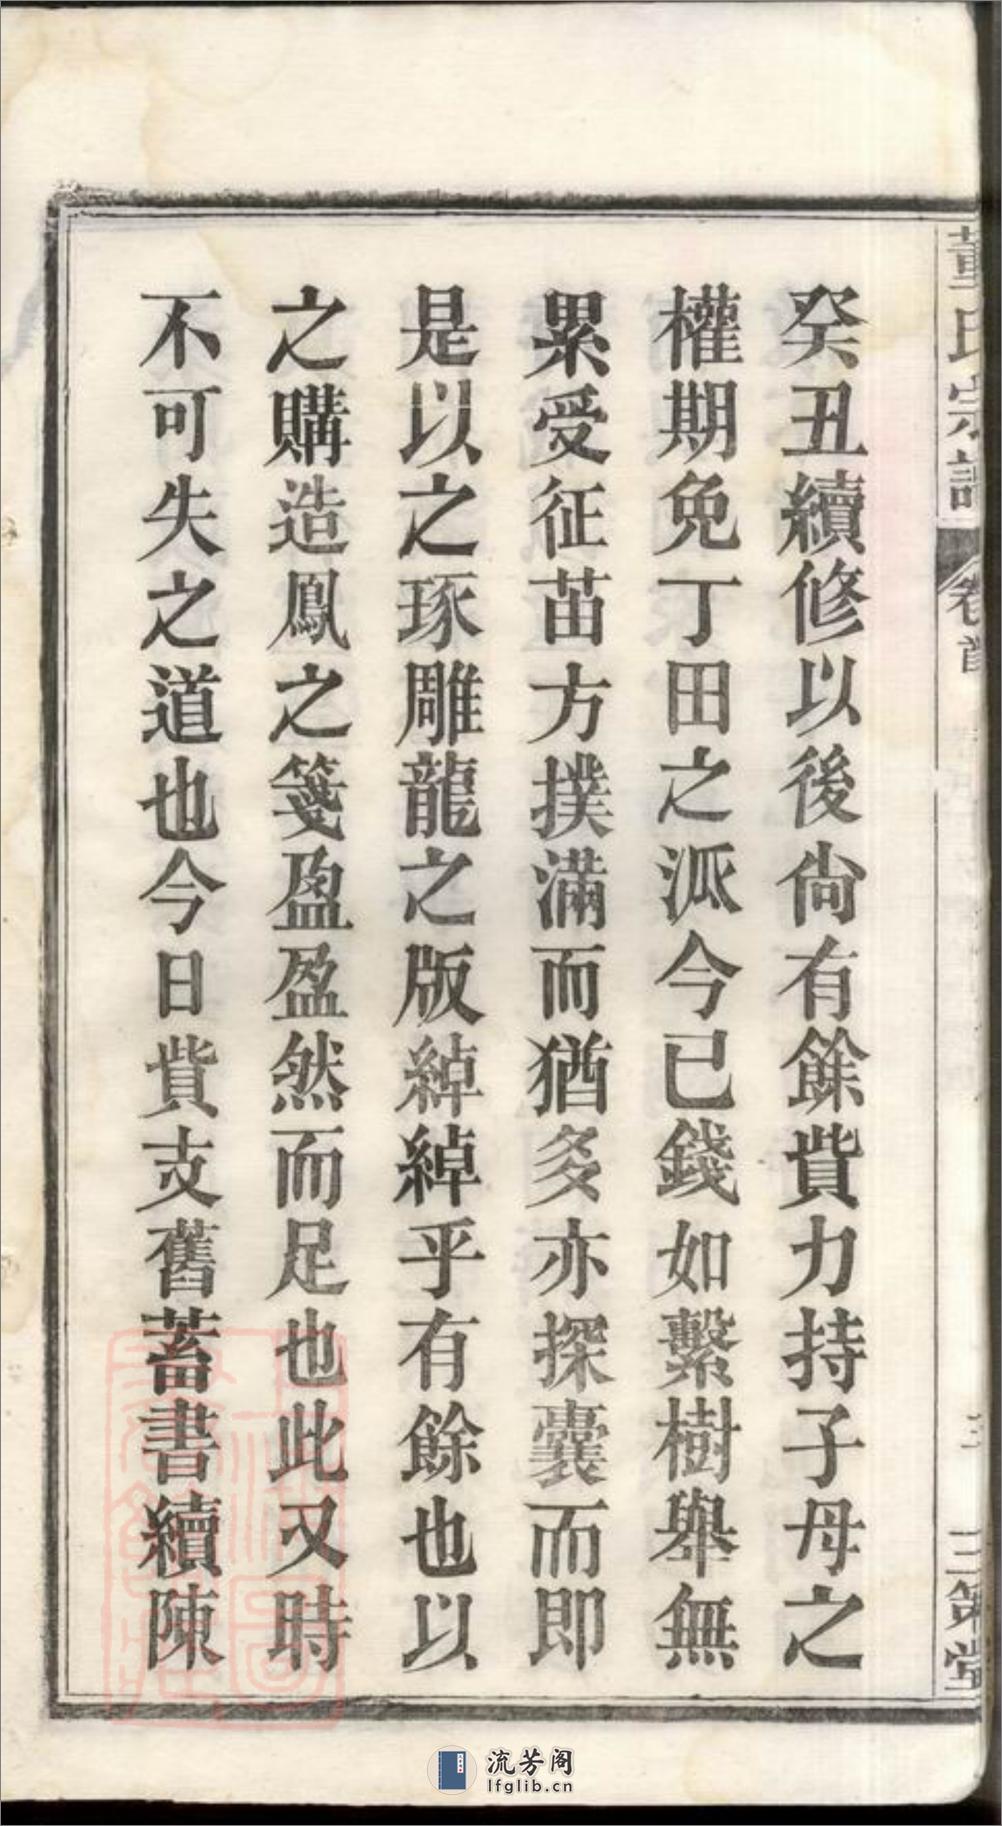 董氏宗譜 卷首 三策堂
癸丑續修以後尙有餘貲力持子母之
權期免丁田之派今已錢如繫樹舉無
累受征苗方撲滿而猶多亦探囊而即
是以之琢雕龍之版綽綽乎有餘也以
之購造鳳之箋盈盈然而足也此又時
不可失之道也今日貲支舊蓄書續陳
流芳阁
lfglib.cn